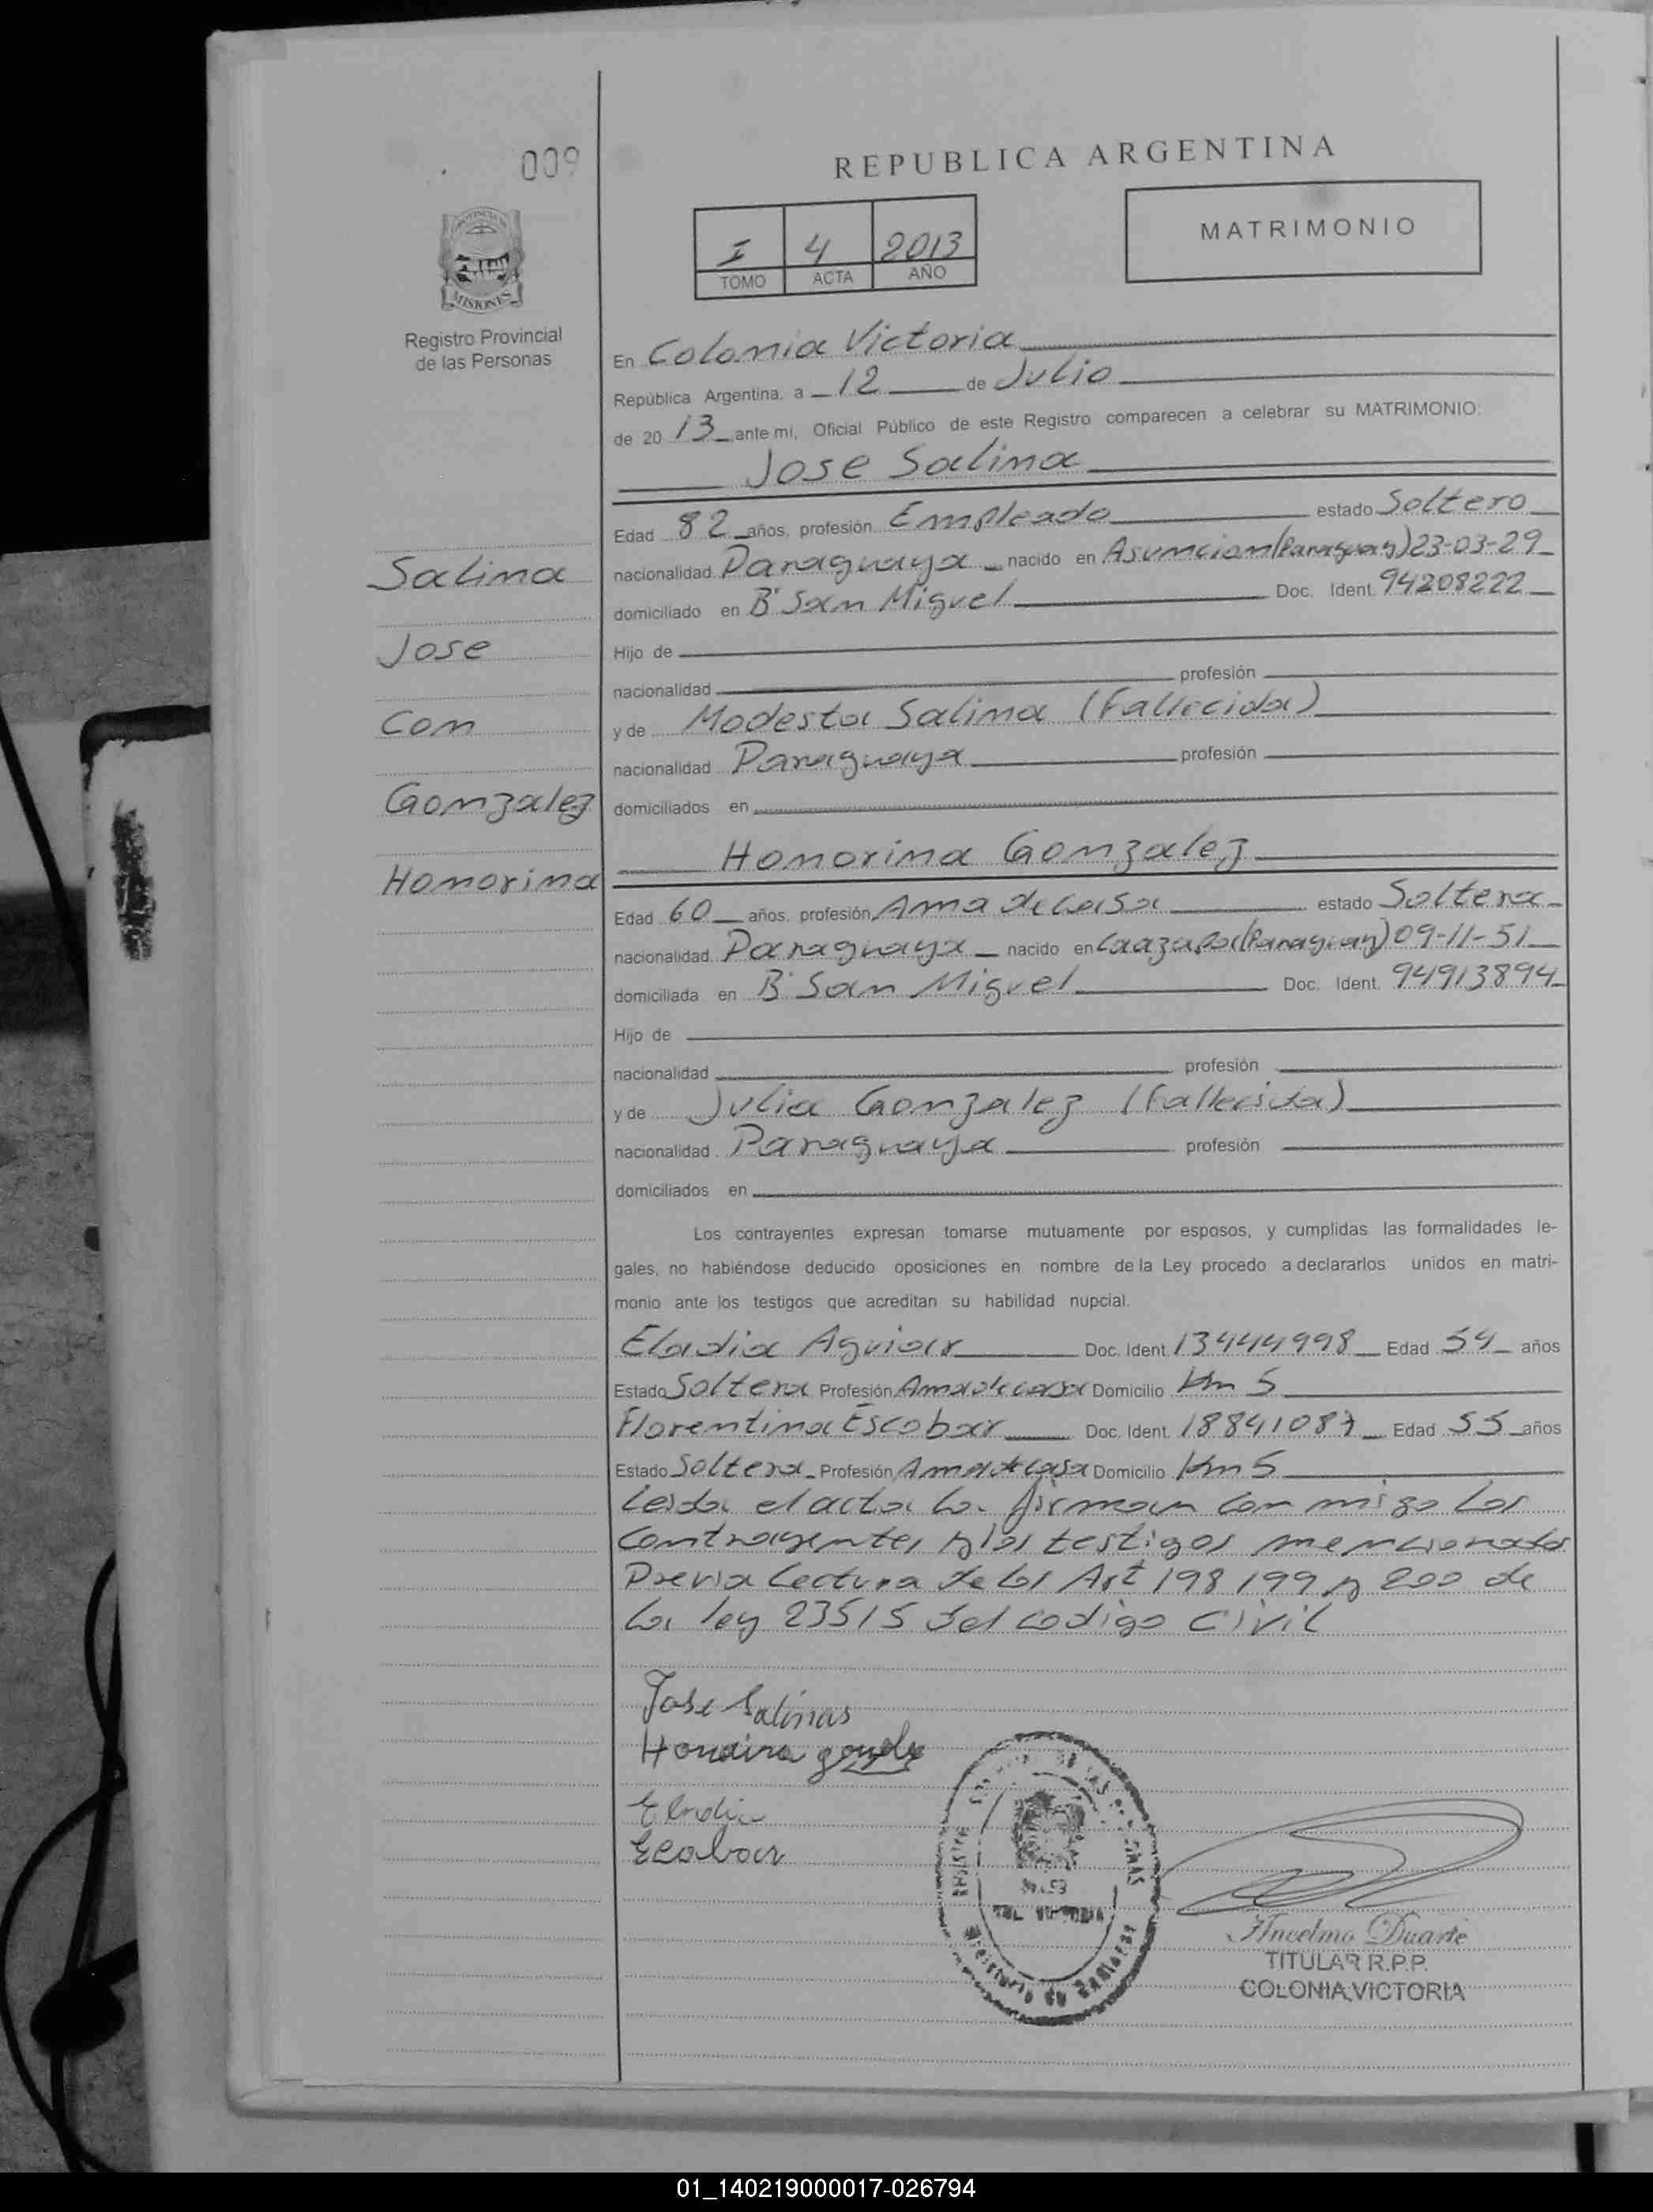 009
REPUBLICA ARGENTINA
PROVINCIA DE
MISIONES
Registro Provincial
de las Personas
I 4 2013
TOMO ACTA AÑO
MATRIMONIO
En Colonia Victoria
República Argentina, a 12 de Julio
de 20 13 ante mi, Oficial Público de este Registro comparecen a celebrar su MATRIMONIO:
Jose Salina
Edad 82 años, profesión Empleado estado Soltero
nacionalidad Paraguaya nacido en Asuncion (Paraguay) 23-03-29
domiciliado en B° San Miguel Doc. Ident. 94208222
Hijo de
nacionalidad profesión
y de Modesta Salina (Fallecida)
nacionalidad Paraguaya profesión
domiciliados en
Salina
Jose
Con
Gonzalez
Honorina
Honorina Gonzalez
Edad 60 años, profesión Ama de casa estado Soltera
nacionalidad Paraguaya nacido en Caazapa (Paraguay) 09-11-51
domiciliada en B° San Miguel Doc. Ident. 94913894
Hijo de
nacionalidad profesión
y de Julia Gonzalez (Fallecida)
nacionalidad Paraguaya profesión
domiciliados en
Los contrayentes expresan tomarse mutuamente por esposos, y cumplidas las formalidades le-
gales, no habiéndose deducido oposiciones en nombre de la Ley procedo a declararlos unidos en matri-
monio ante los testigos que acreditan su habilidad nupcial.
Eladia Aguiar Doc. Ident. 13444998 Edad 54 años
Estado Soltera Profesión Ama de casa Domicilio Km 5
Florentina Escobar Doc. Ident. 18841087 Edad 55 años
Estado Soltera Profesión Ama de casa Domicilio Km 5
Leida el acta la firman con migo los
contrayentes y los testigos mencionados
Previa Lectura de los Art 198 199 y 200 de
la ley 23515 del codigo Civil
Jose Salinas
Eladia
Ecobar
Ancelmo Duarte
TITULAR R.P.P.
COLONIA VICTORIA
01_140219000017-026794